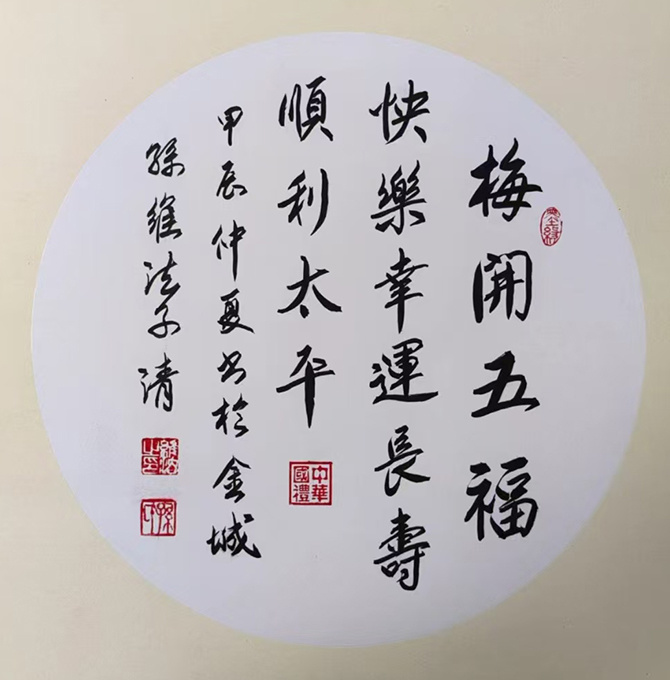 梅開五福
快樂幸運長壽
順利太平
甲辰仲夏書於金城
孫維法子清
中華國禮